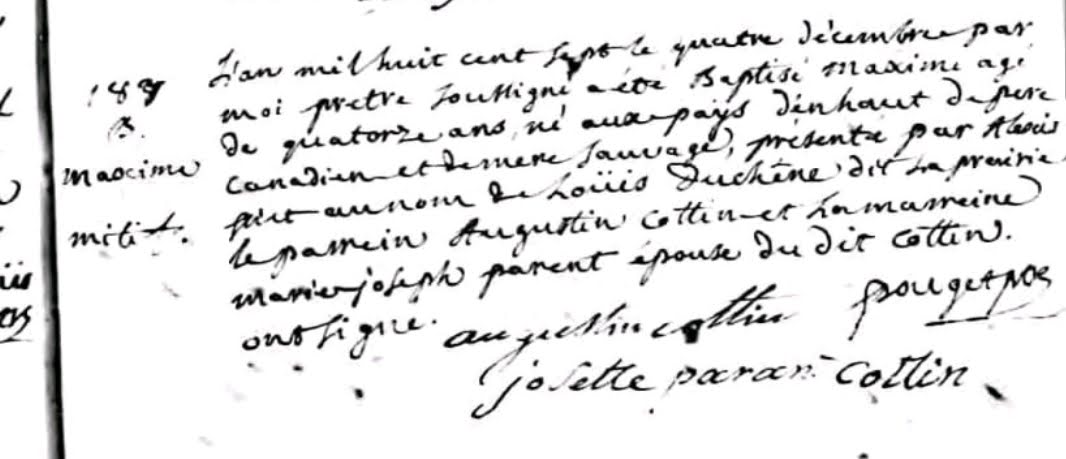 B.
maxime
mitif.
L'an mil huit cent sept le quatre décembre par
moi prêtre soussigné a été Baptisé Maxime agé
de quatorze ans, né aux pays d'enhaut de père
canadien et de mere sauvage, présenté par Alexis
au nom de Loüis Duchêne dit La prairie
le parrein Augustin Cottin et La marreine
marie joseph parent épouse du dit Cottin.
ont signe.
augustin cottin pouget ptre
josette paran cottin